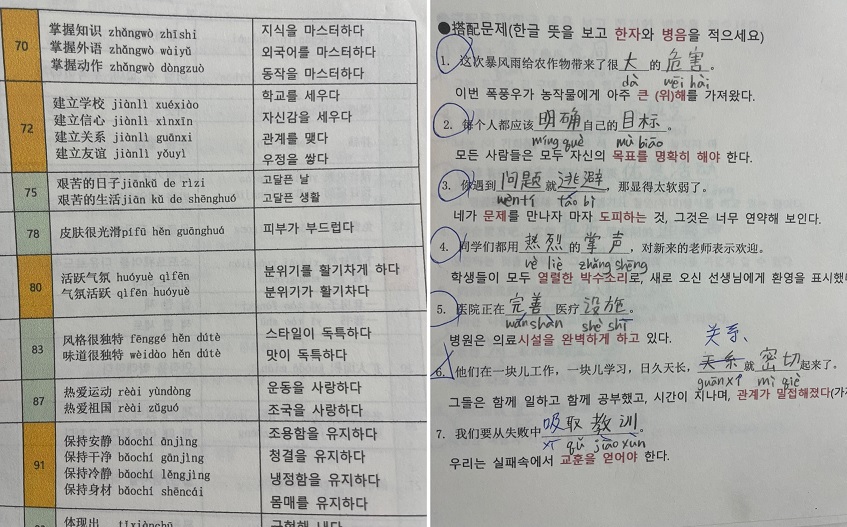 70
掌握知识 zhǎngwò zhīshi 지식을 마스터하다
掌握外语 zhǎngwò wàiyǔ 외국어를 마스터하다
掌握动作 zhǎngwò dòngzuò 동작을 마스터하다
72
建立学校 jiànlì xuéxiào 학교를 세우다
建立信心 jiànlì xìnxīn 자신감을 세우다
建立关系 jiànlì guānxi 관계를 맺다
建立友谊 jiànlì yǒuyì 우정을 쌓다
75
艰苦的日子jiānkǔ de rìzi 고달픈 날
艰苦的生活jiān kǔ de shēnghuó 고달픈 생활
78
皮肤很光滑pífū hěn guānghuá 피부가 부드럽다
80
活跃气氛 huóyuè qìfēn 분위기를 활기차게 하다
气氛活跃 qìfēn huóyuè 분위기가 활기차다
83
风格很独特 fēnggé hěn dútè 스타일이 독특하다
味道很独特 wèidào hěn dútè 맛이 독특하다
87
热爱运动 rèài yùndòng 운동을 사랑하다
热爱祖国 rèài zǔguó 조국을 사랑하다
91
保持安静 bǎochí ānjìng 조용함을 유지하다
保持干净 bǎochí gānjìng 청결을 유지하다
保持冷静 bǎochí lěngjìng 냉정함을 유지하다
保持身材 bǎochí shēncái 몸매를 유지하다
体现出
●搭配문제(한글 뜻을 보고 한자와 병음을 적으세요)
1. 这次暴风雨给农作物带来了很 大 的 危害。
dà wēi hài
이번 폭풍우가 농작물에게 아주 큰 (위)해를 가져왔다.
2. 每个人都应该 明确 自己的 目标 。
míng què mù biāo
모든 사람들은 모두 자신의 목표를 명확히 해야 한다.
3. 你遇到 问题 就 逃避 ，那显得太软弱了。
wèn tí táo bì
네가 문제를 만나자 마자 도피하는 것, 그것은 너무 연약해 보인다.
4. 同学们都用 热烈 的 掌声 ，对新来的老师表示欢迎。
rè liè zhǎng shēng
학생들이 모두 열렬한 박수소리로, 새로 오신 선생님에게 환영을 표시했
5. 医院正在 完善 医疗 设施。
wánshàn shè shī
병원은 의료시설을 완벽하게 하고 있다.
关系
6. 他们在一块儿工作，一块儿学习，日久天长，关系 就 密切 起来了。
guān xì mì qiè
그들은 함께 일하고 함께 공부했고, 시간이 지나며, 관계가 밀접해졌다(가
7. 我们要从失败中 吸取 教训 。
xī qǔ jiào xùn
우리는 실패속에서 교훈을 얻어야 한다.